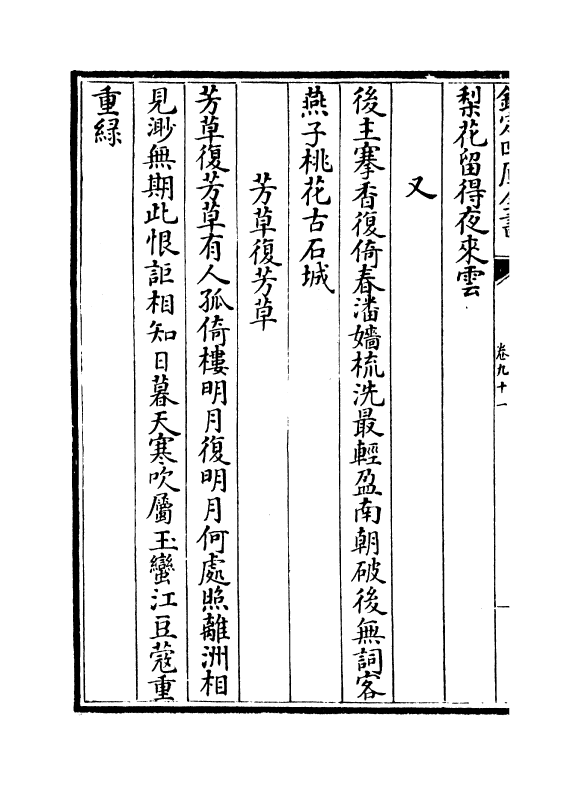 欽定四庫全書
卷九十一
梨花留得夜來雲
又
後主搴香復倚春潘嬙梳洗最輕盈南朝破後無詞客
燕子桃花古石城
芳草復芳草
芳草復芳草有人孤倚樓明月復明月何處照離洲相
見渺無期此恨詎相知日暮天寒吹屬玉蠻江豆蔻重
重緑